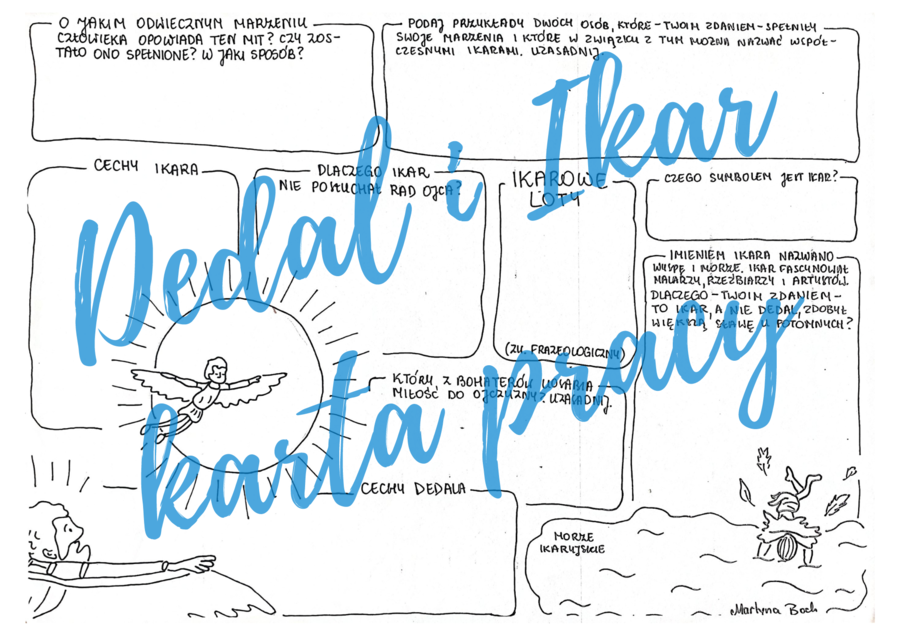 O JAKIM ODWIECZNYM MARZENIU
CZŁOWIEKA OPOWIADA TEN MIT? CZY ZOS-
TAŁO ONO SPEŁNIONE? W JAKI SPOSÓB?
PODAJ PRZYKŁADY DWÓCH OSÓB, KTÓRE - TWOIM ZDANIEM - SPEŁNIŁY
SWOJE MARZENIA I KTÓRE W ZWIĄZKU Z TYM MOŻNA NAZWAĆ WSPÓŁ-
CZESNYMI IKARAMI. UZASADNIJ.
CECHY IKARA
DLACZEGO IKAR
NIE POSŁUCHAŁ RAD OJCA?
IKAROWE
LOTY
(ZW. FRAZEOLOGICZNY)
CZEGO SYMBOLEM JEST IKAR?
IMIENIEM IKARA NAZWANO
WYSPĘ I MORZE, IKAR FASCYNOWAŁ
MALARZY, RZEŹBIARZY I ARTYSTÓW.
DLACZEGO - TWOIM ZDANIEM -
TO IKAR, A NIE DEDAL, ZDOBYŁ
WIĘKSZĄ SŁAWĘ U POTOMNYCH?
Dedal i Ikar
karta pracy
KTÓRY Z BOHATERÓW WYRAŻA
MIŁOŚĆ DO OJCZYZNY? UZASADNIJ.
CECHY DEDALA
MORZE
IKARYJSKIE
Martyna Boch